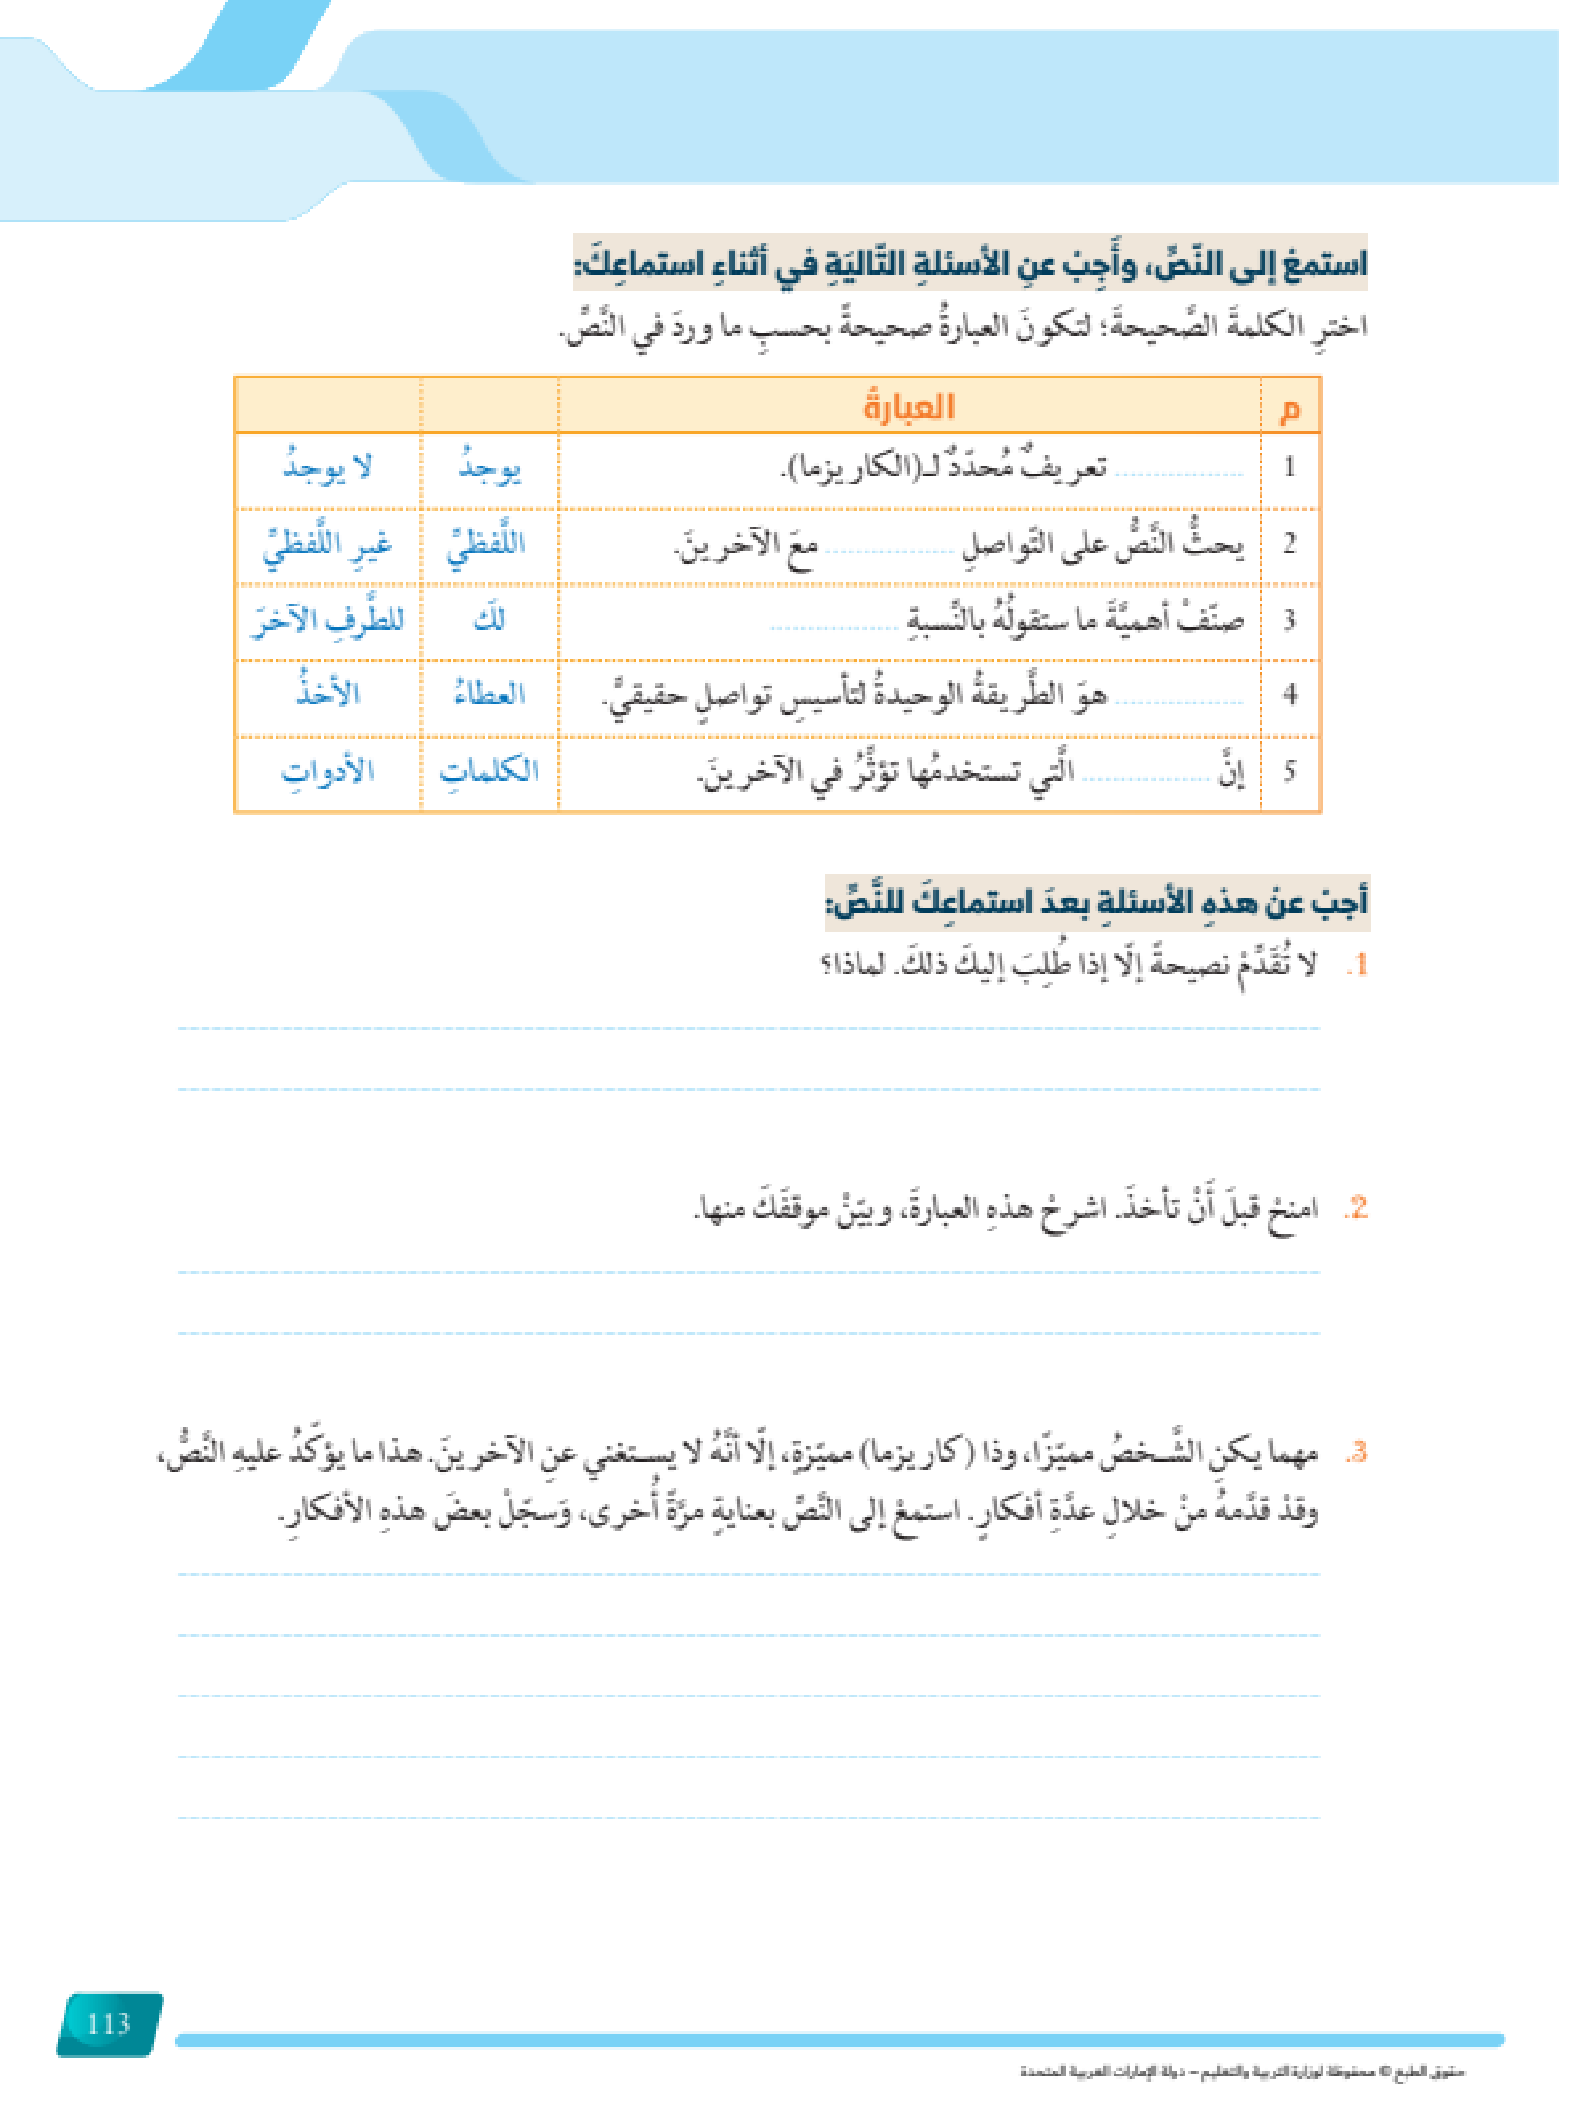 استمعْ إلى النّصِّ، وأَجِبْ عنِ الأسئلةِ التّاليَةِ في أثناءِ استماعِكَ:
اخترِ الكلمةَ الصَّحيحةَ؛ لتكونَ العبارةُ صحيحةً بحسبِ ما وردَ في النَّصِّ.
م العبارةُ
1 ................ تعريفٌ مُحدّدٌ لـ(الكاريزما). يوجدُ لا يوجدُ
2 يحثُّ النَّصُّ على التّواصلِ ................ معَ الآخرينَ. اللَّفظيِّ غيرِ اللَّفظيِّ
3 صنّفْ أهميَّةَ ما ستقولُهُ بالنّسبةِ ................ لكَ للطَّرفِ الآخرَ
4 ................ هوَ الطَّريقةُ الوحيدةُ لتأسيسِ تواصلٍ حقيقيٍّ. العطاءُ الأخذُ
5 إنَّ ................ الَّتي تستخدمُها تؤثّرُ في الآخرينَ. الكلماتِ الأدواتِ
أجبْ عنْ هذهِ الأسئلةِ بعدَ استماعِكَ للنَّصِّ:
1. لا تُقَدِّمْ نصيحةً إلّا إذا طُلِبَ إليكَ ذلكَ. لماذا؟
2. امنحْ قبلَ أَنْ تأخذَ. اشرحْ هذهِ العبارةَ، وبيّنْ موقفَكَ منها.
3. مهما يكنِ الشَّخصُ مميّزًا، وذا (كاريزما) مميّزةٍ، إلّا أنَّهُ لا يستغني عنِ الآخرينَ. هذا ما يؤكّدُ عليهِ النَّصُّ،
وقدْ قدَّمهُ منْ خلالِ عدَّةِ أفكارٍ. استمعْ إلى النَّصِّ بعنايةٍ مرَّةً أُخرى، وَسجّلْ بعضَ هذهِ الأفكارِ.
113
حقوق الطبع © محفوظة لوزارة التربية والتعليم – دولة الإمارات العربية المتحدة